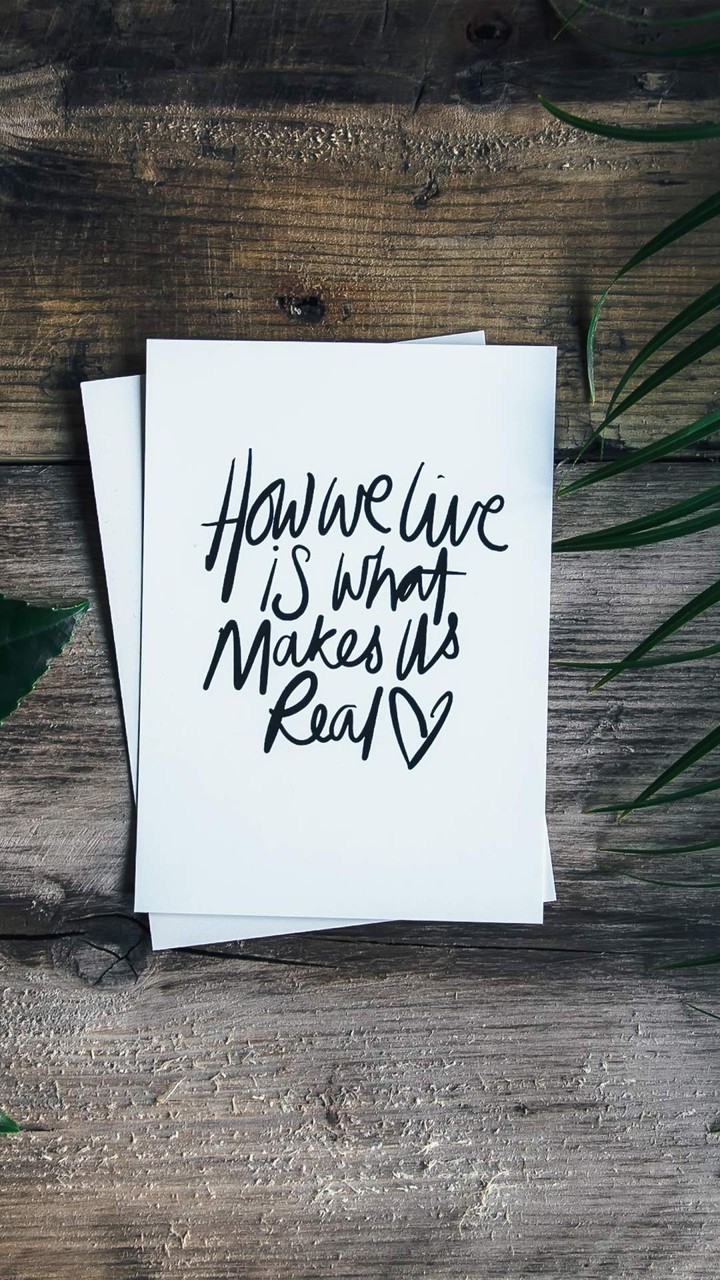 How we live
is what
Makes Us
Real♡